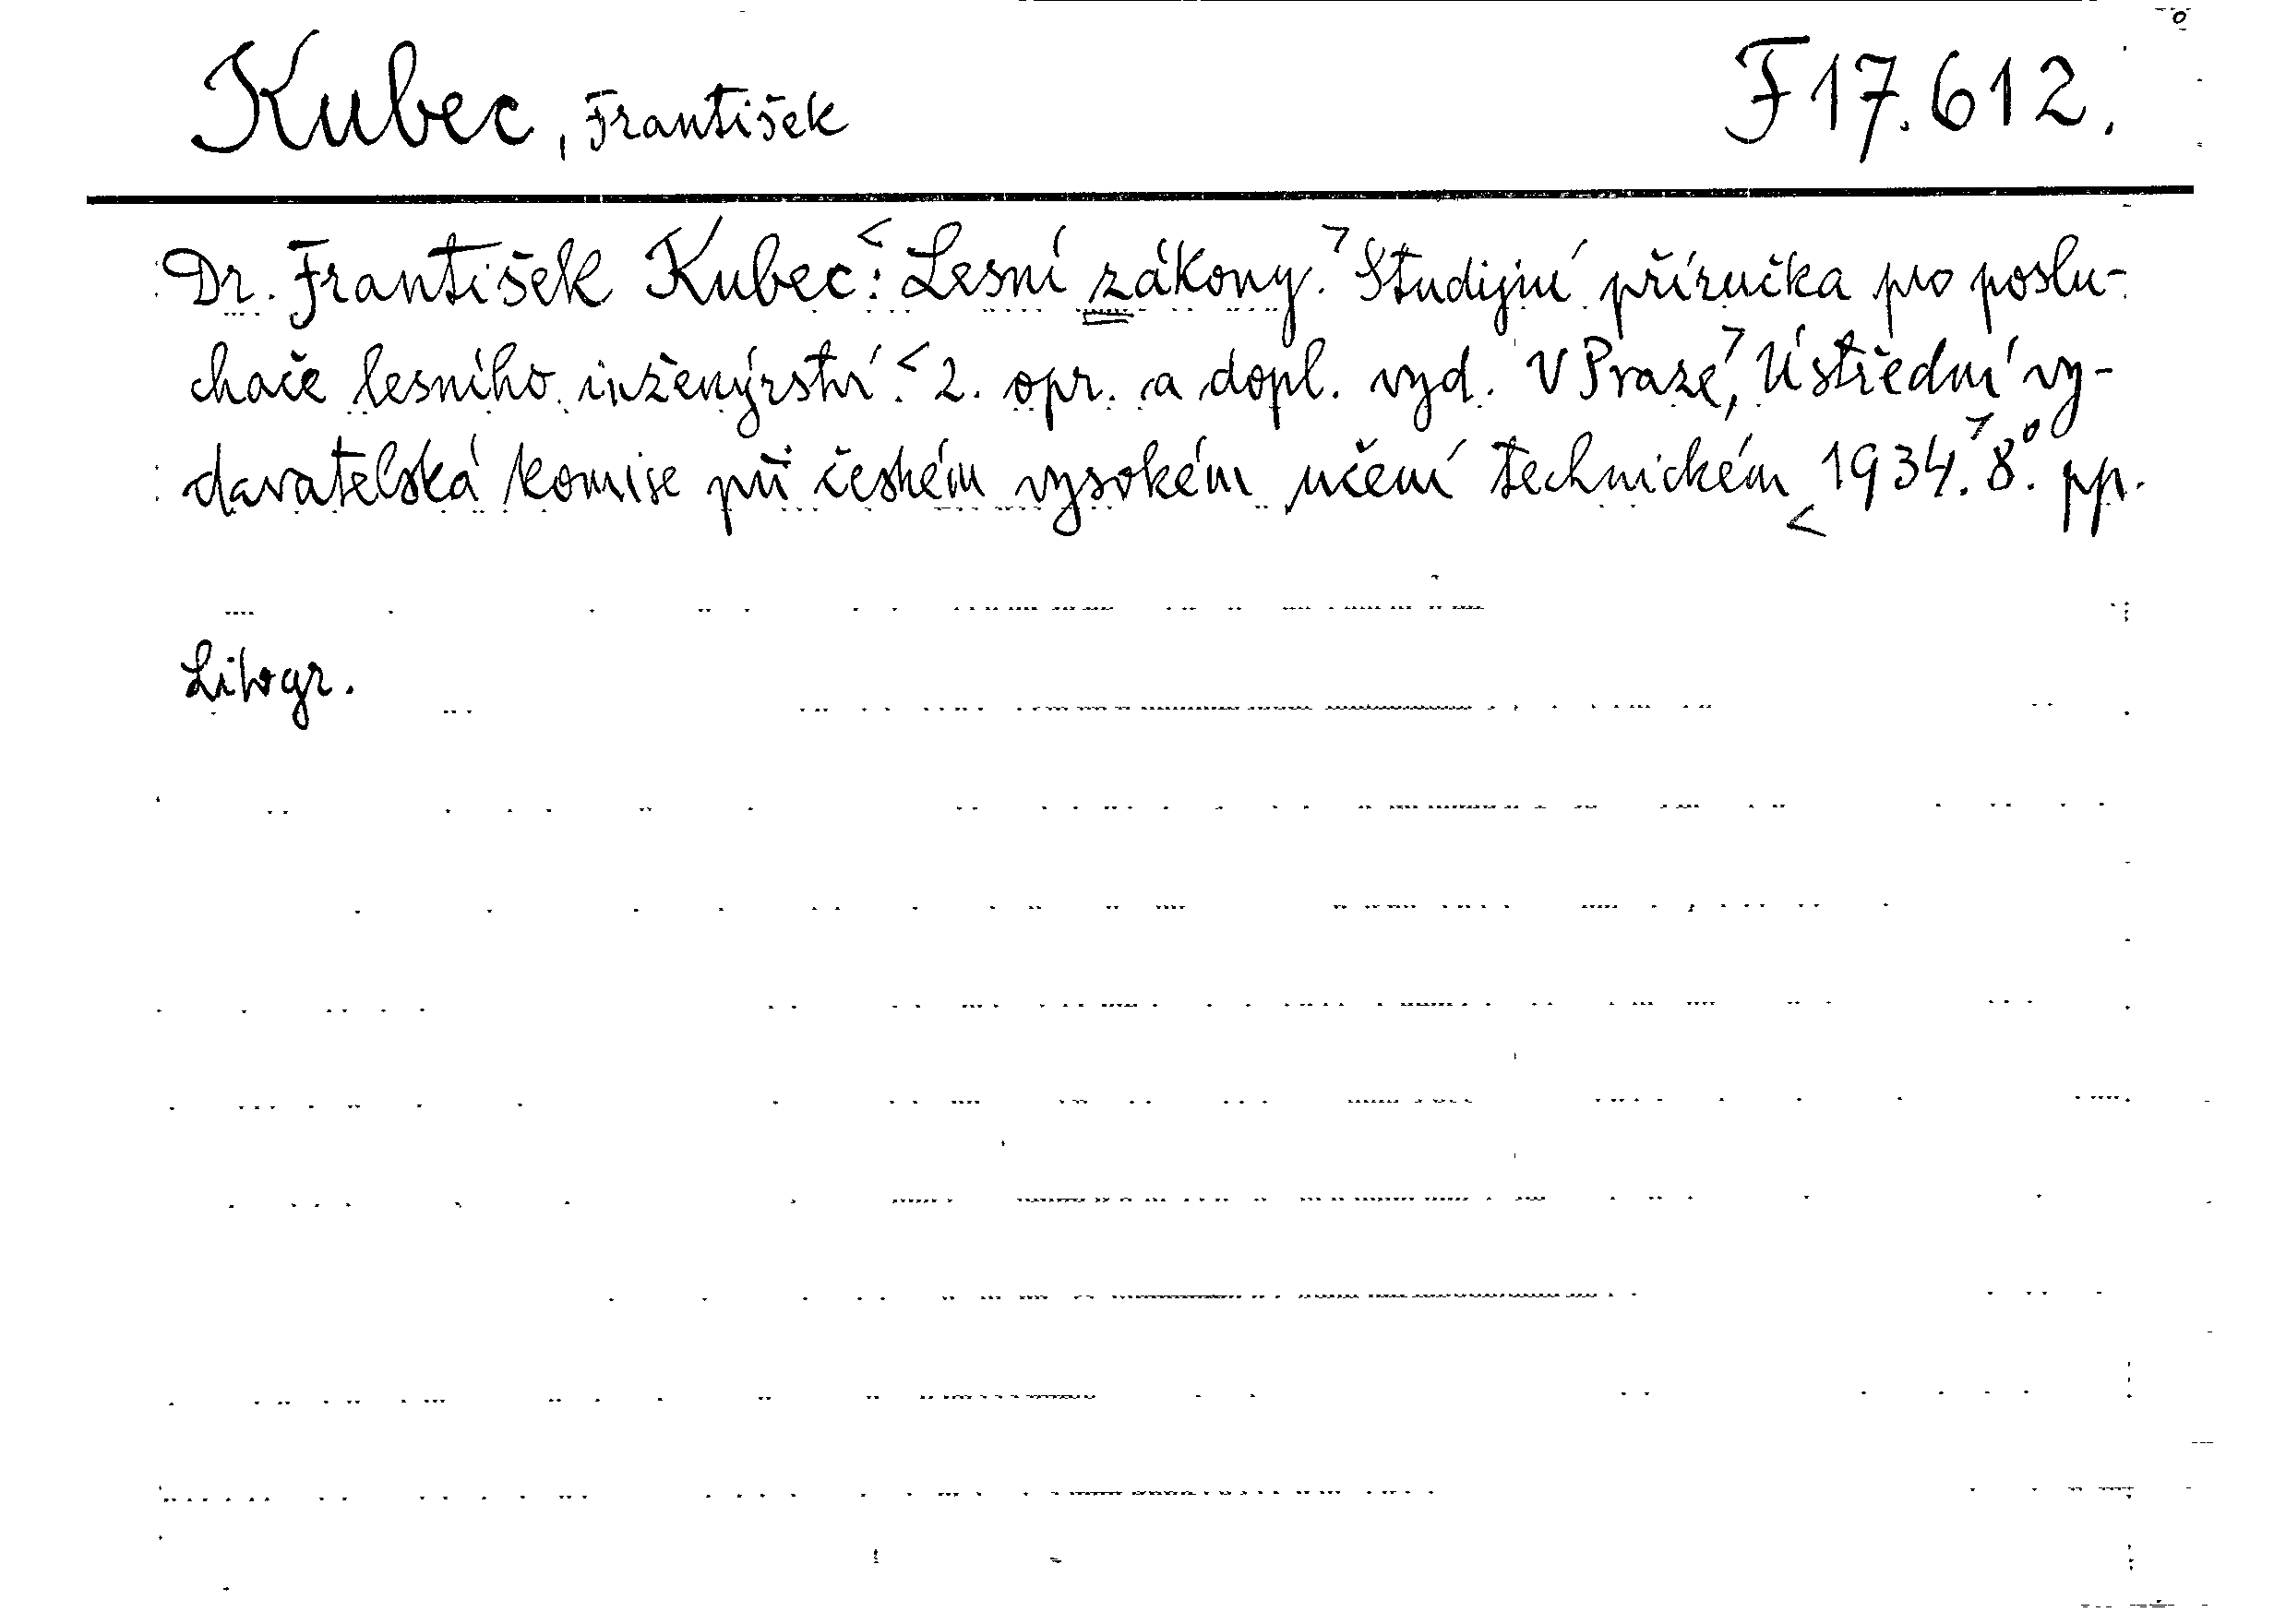 Kubec, František F 17.612.
Dr. František Kubec: Lesní zákony. Studijní příručka pro poslu-
chače lesního inženýrství. 2. opr. a dopl. vyd. V Praze, Ústřední vy-
davatelská komise při českém vysokém učení technickém 1934. 8°. pp.
Litogr.